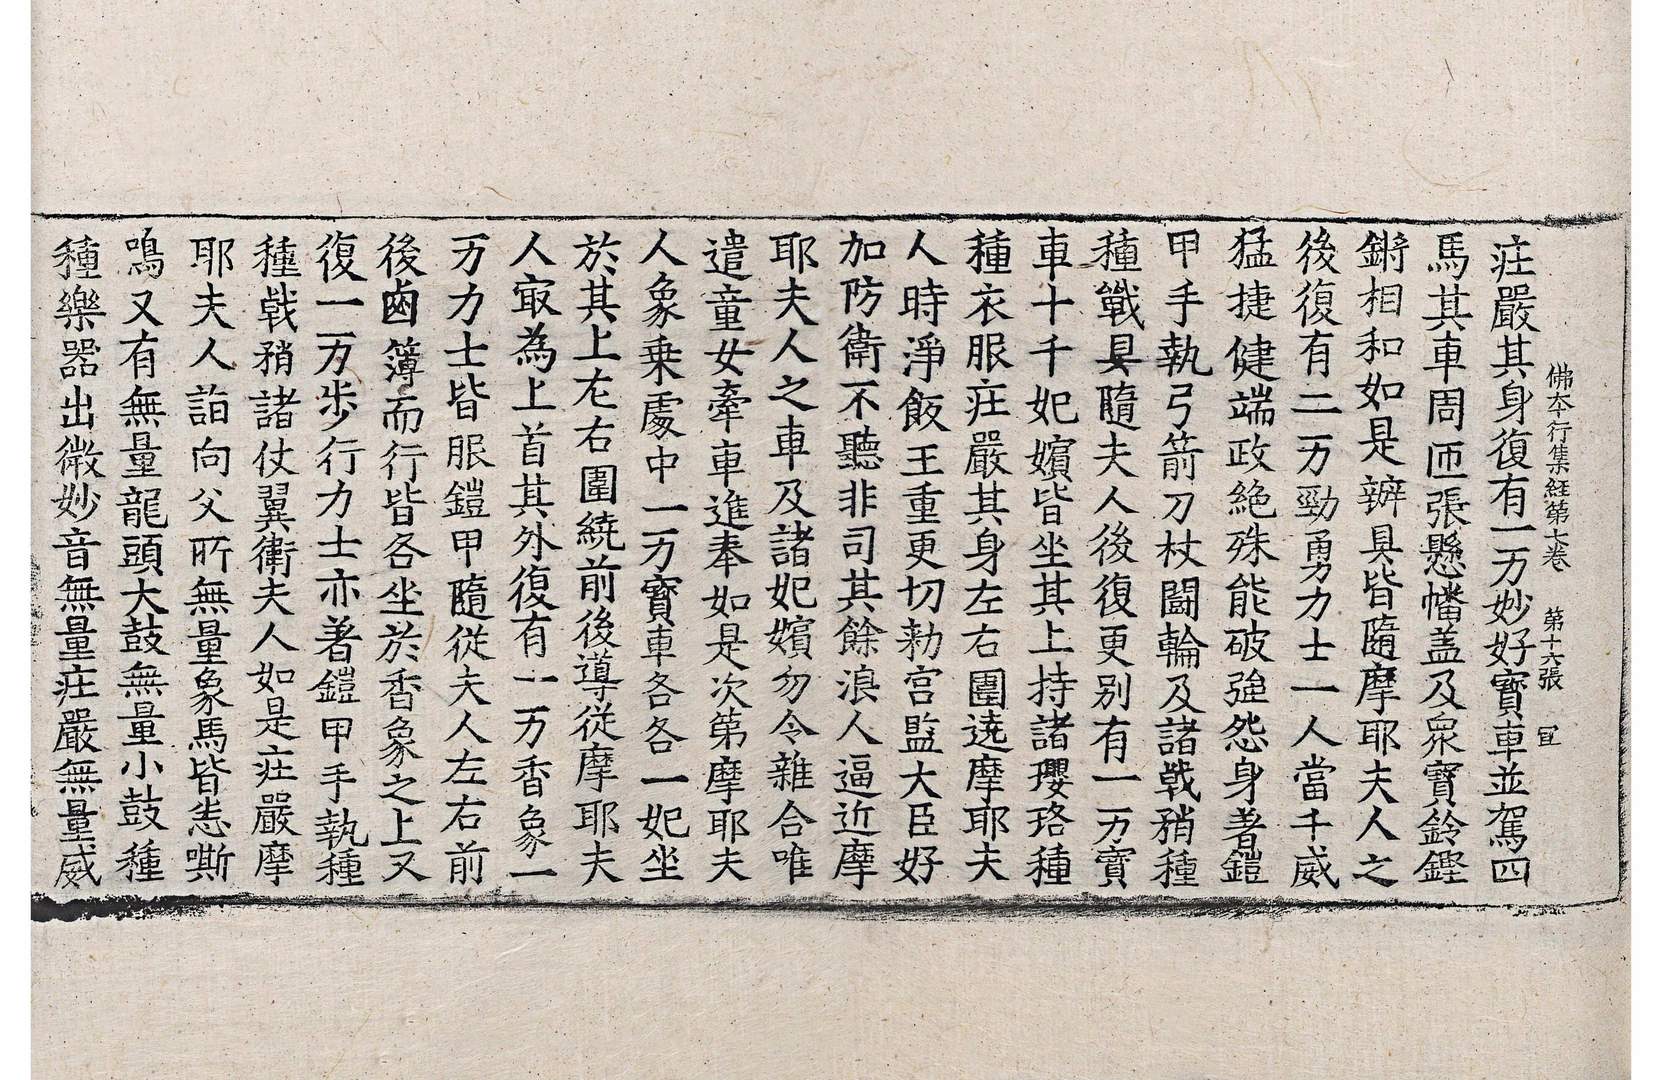 佛本行集経第七卷　第十六張　冝
疘嚴其身復有一万妙好寶車並駕四
馬其車周迊張懸幡盖及衆寶鈴鏗
鏘相和如是辦具皆隨摩耶夫人之
後復有二万勁勇力士一人當千威
猛捷健端政絶殊能破強怨身著鎧
甲手執弓箭刀杖鬪輪及諸戟矟種
種戰具隨夫人後復更别有一万寶
車十千妃嬪皆坐其上持諸瓔珞種
種衣服疘嚴其身左右圍遶摩耶夫
人時淨飯王重更切勑宫監大臣好
加防衛不聽非司其餘浪人逼近摩
耶夫人之車及諸妃嬪勿令雜合唯
遣童女牽車進奉如是次第摩耶夫
人象乗處中一万寶車各各一妃坐
於其上左右圍繞前後導從摩耶夫
人㝡為上首其外復有一万香象一
万力士皆服鎧甲隨從夫人左右前
後鹵簿而行皆各坐於香象之上又
復一万步行力士亦著鎧甲手執種
種戟矟諸仗翼衛夫人如是疘嚴摩
耶夫人詣向父所無量象馬皆悉嘶
鳴又有無量龍頭大鼓無量小鼓種
種樂器出微妙音無量疘嚴無量威